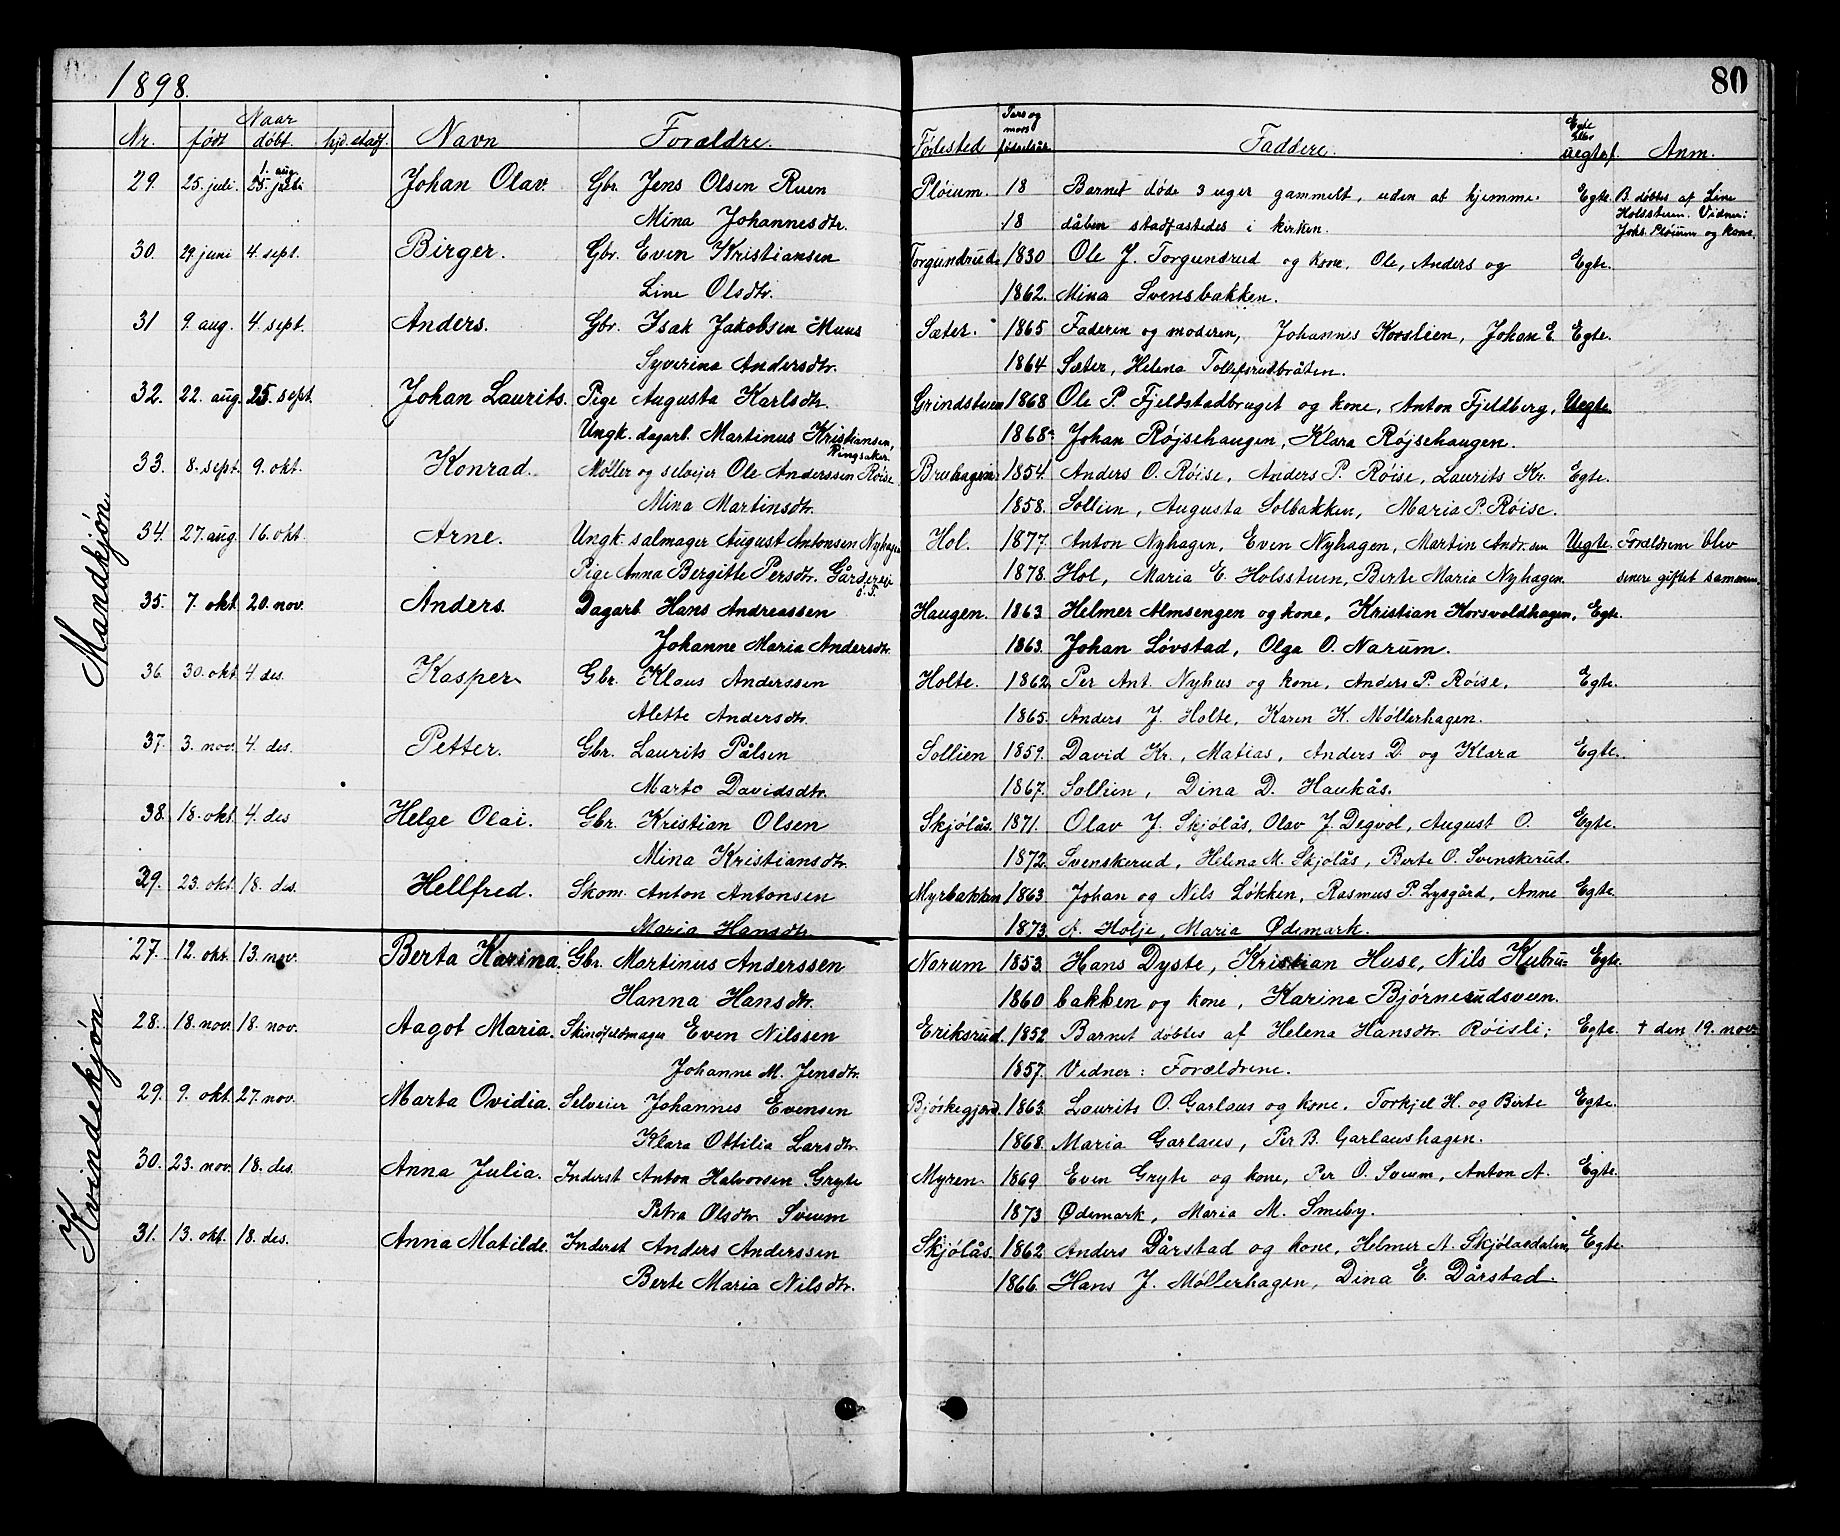 1898.
80
Nr. | Naar født | døbt. | hjd. stadf. | Navn | Forældre. | Fødested | Fars og mors fødselsår | Faddere. | Egte eller uegtef. | Anm.
Mandkjøn
29. | 25. juli. | 1. aug. 25. juli | Johan Olav. | Gbr. Jens Olsen Ruen | Pløium. | 18 | Barnet døde 3 uger gammelt, uden at hjemme- | Egte. | B. døbtes af Line
Mina Johannesdtr. | 18 | dåben stadfæstedes i kirken. | Holssteen. Vidner:
Johs. Pløium og kone.
30. | 29. juni | 4. sept. | Birger. | Gbr. Even Kristiansen | Torgundrud. | 1830 | Ole J. Torgundrud og kone, Ole, Anders og | Egte.
Line Olsdtr. | 1862. | Mina Svensbakken.
31 | 9. aug. | 4. sept. | Anders. | Gbr. Isak Jakobsen Muus | Sæter. | 1865 | Faderen og moderen, Johannes Korslien, Johan E. | Egte.
Syverina Andersdtr. | 1864 | Sæter, Helena Tollefsrudbråten.
32. | 22. aug. | 25. sept. | Johan Laurits. | Pige Augusta Karlsdtr. | Grindstuen | 1868 | Ole P. Fjeldstadbruget og kone, Anton Fjeldberg, | Uegte
Ungk. dagarb. Martinus Kristiansen, Ringsaker. | 1868. | Johan Røjsehaugen, Klara Røjsehaugen.
33. | 8. sept. | 9. okt. | Konrad. | Møller og selvejer Ole Anderssen Røise | Bruhagen | 1854. | Anders O. Røise, Anders P. Røise, Laurits Kr. | Egte.
Mina Martinsdtr. | 1858. | Sollien, Augusta Solbakken, Maria P. Røise.
34. | 27. aug. | 16. okt. | Arne. | Ungk. salmager August Antonsen Nyhagen | Hol. | 1877. | Anton Nyhagen, Even Nyhagen, Martin Andr.sen | Uegte. | Forældrene blev
Pige Anna Bergitte Persdtr. | 1878. | Hol, Maria E. Holssteen, Berte Maria Nyhagen. | senere giftet sammen.
35. | 7. okt. | 20. nov. | Anders. | Dagarb. Hans Andreassen | Haugen. | 1863 | Helmer Almsengen og kone, Kristian Korsvoldhagen, | Egte.
Johanne Maria Andersdtr. | 1863. | Johan Løvstad, Olga O. Narum.
36. | 30. okt. | 4. des. | Kasper. | Gbr. Klaus Anderssen | Holte. | 1862 | Per Ant. Nyhus og kone, Anders P. Røise, | Egte.
Alette Andersdtr. | 1865. | Anders J. Holte, Karen K. Møllerhagen.
37. | 3. nov. | 4. des. | Petter. | Gbr. Laurits Pålsen | Sollien | 1859. | David Kr., Matias, Anders D. og Klara | Egte.
Marte Davidsdtr. | 1867. | Sollien, Dina D. Haukås.
38. | 18. okt. | 4. des | Helge Olai. | Gbr. Kristian Olsen | Skjølås. | 1871. | Olav J. Skjølås, Olav J. Degvol, August O. | Egte.
Mina Kristiansdtr. | 1872. | Svenskerud, Helena M. Skjølås, Berte O. Svenskerud.
39. | 23. okt. | 18. des. | Hellfred. | Skom. Anton Antonsen | Myrbakken | 1863 | Johan og Nils Løkken, Rasmus P. Lysgård, Anne | Egte.
Maria Hansdtr. | 1873. | A. Holje, Maria Ødemark.
Kvindekjøn
27. | 12. okt. | 13. nov. | Berta Karina. | Gbr. Martinus Anderssen | Narum | 1853. | Hans Dyste, Kristian Huse, Nils Kubru= | Egte.
Hanna Hansdtr. | 1860 | bakken og kone, Karina Bjørnerudsveen.
28. | 18. nov. | 18. nov. | Aagot Maria. | Skindfeldmager Even Nilssen | Eriksrud. | 1852 | Barnet døbtes af Helena Hansdtr. Røisli; | Egte. | † den 19. nov.
Johanne M. Jensdtr. | 1857. | Vidner: Forældrene.
29. | 9. okt. | 27. nov. | Marta Ovidia. | Selveier Johannes Evensen | Bjørkegjerd. | 1863. | Laurits O. Garlaus og kone, Torkjel H. og Birte | Egte.
Klara Ottilia Larsdtr. | 1868. | Maria Garlaus, Per B. Garlaushagen.
30. | 23. nov. | 18. des. | Anna Julia. | Inderst Anton Halvorsen Gryte | Myren. | 1869 | Even Gryte og kone, Per O. Sveum, Anton A. | Egte.
Petra Olsdtr. Sveum | 1873 | Ødemark, Maria M. Smeby.
31. | 13. okt. | 18. des. | Anna Matilde. | Inderst Anders Anderssen | Skjølås. | 1862 | Anders Dårstad og kone, Helmer A. Skjølåsdalen, | Egte
Berte Maria Nilsdtr. | 1866. | Hans J. Møllerhagen, Dina E. Dårstad.